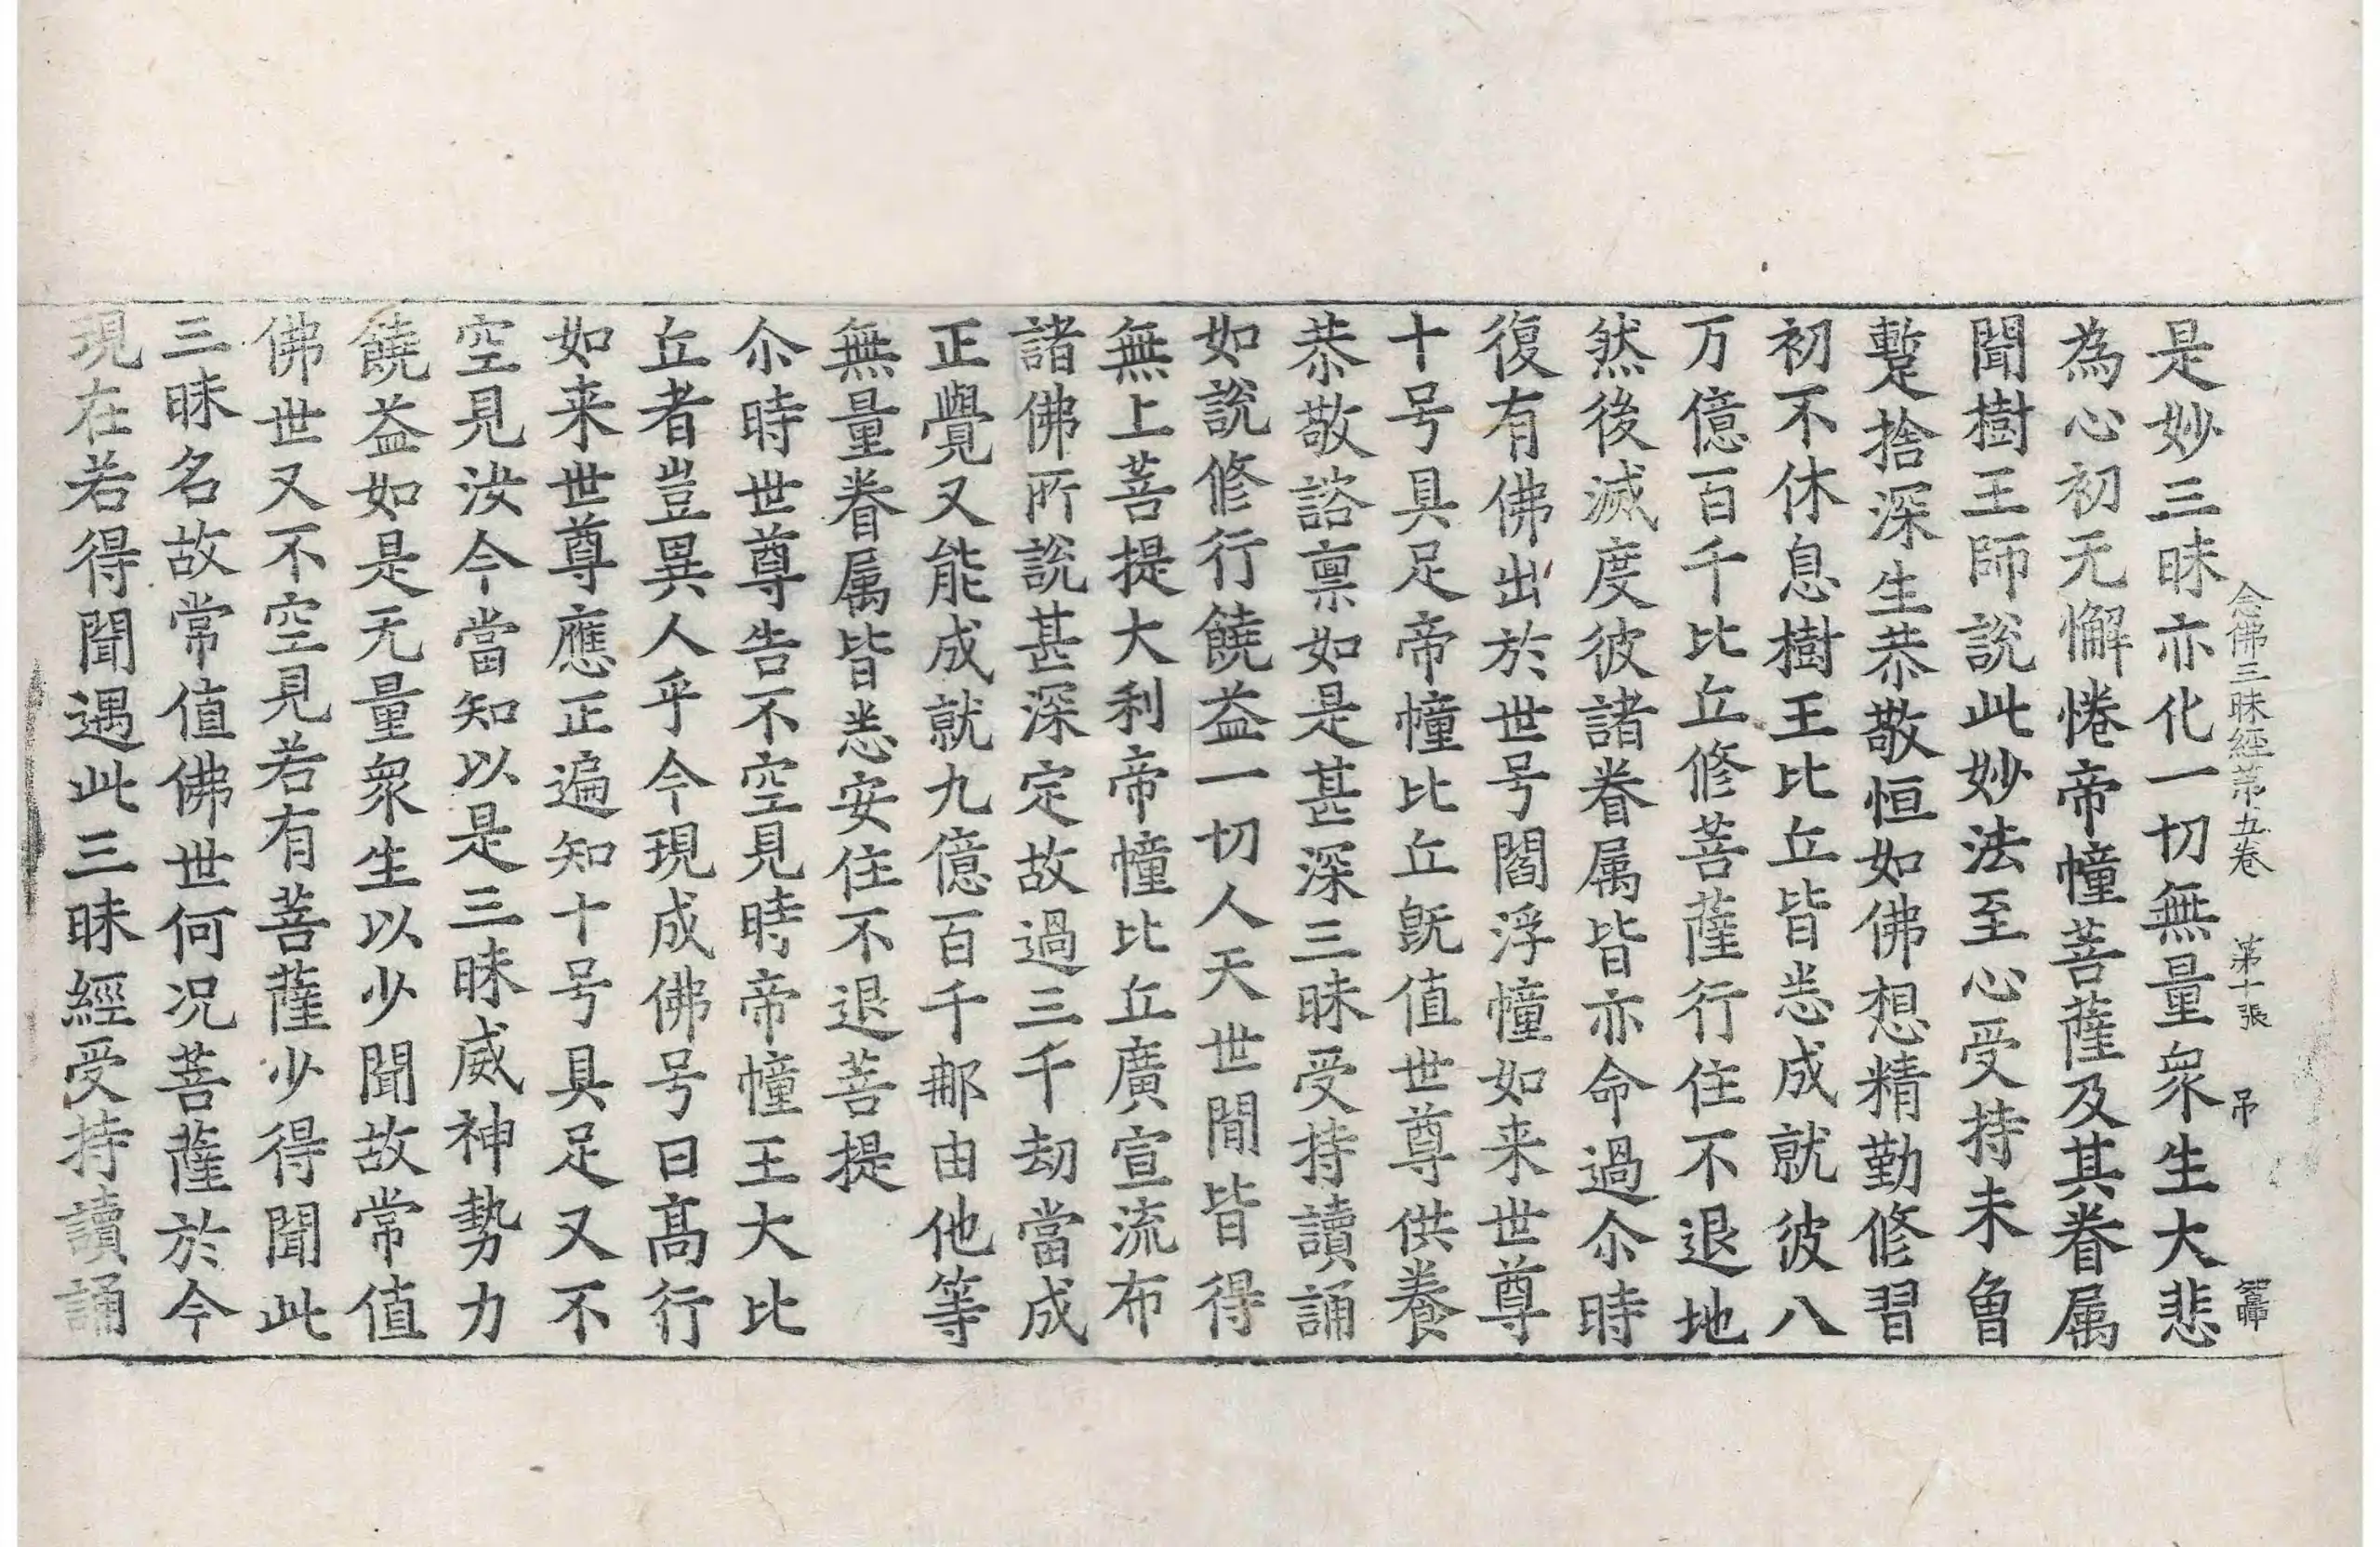 念佛三昧經第五卷 第十張 吊
是妙三昧亦化一切無量衆生大悲
為心初无懈惓帝幢菩薩及其眷属
聞樹王師說此妙法至心受持未曾
蹔捨深生恭敬恒如佛想精勤修習
初不休息樹王比丘皆悉成就彼八
万億百千比丘修菩薩行住不退地
然後滅度彼諸眷属皆亦命過尒時
復有佛出於世号閻浮幢如来世尊
十号具足帝幢比丘既值世尊供養
恭敬諮禀如是甚深三昧受持讀誦
如說修行饒益一切人天世間皆得
無上菩提大利帝幢比丘廣宣流布
諸佛所說甚深定故過三千劫當成
正覺又能成就九億百千那由他等
無量眷属皆悉安住不退菩提
尒時世尊告不空見時帝幢王大比
丘者豈異人乎今現成佛号曰髙行
如来世尊應正遍知十号具足又不
空見汝今當知以是三昧威神勢力
饒益如是无量衆生以少聞故常值
佛世又不空見若有菩薩少得聞此
三昧名故常值佛世何况菩薩於今
現在若得聞遇此三昧經受持讀誦